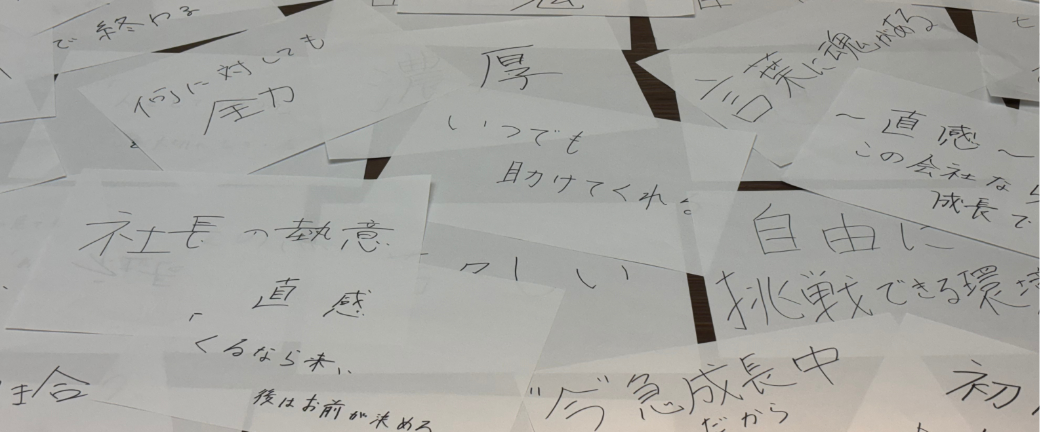 で終わる
何に対しても
圧力
厚
いつでも
助けてくれる
言葉に魂がある
〜直感〜
この会社なら
成長で
社長の熱意
直感
くるなら来い
後はお前が決めろ
自由に
挑戦できる環境
"今"急成長中
だから
初